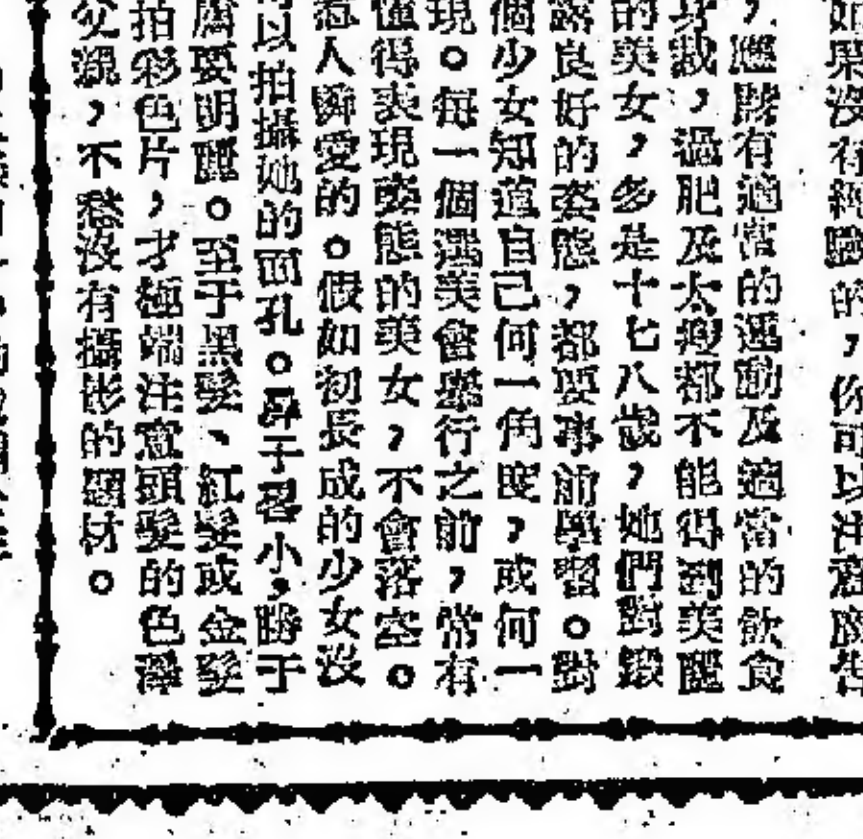 如果没有經驗的，你可以注意廣告
，應該有適當的運動及適當的飲食
身裁，過肥及太瘦都不能得到美麗
的美女，多是十七八歲，她們對鏡
露良好的姿態，都要事前學習。對
個少女知道自己何一角度，或何一
現。每一個選美會舉行之前，常有
懂得表現姿態的美女，不會落空。
惹人憐愛的。假如初長成的少女沒
可以拍攝她的面孔。鼻子畧小，勝于
膚要明麗。至于黑髮、紅髮或金髮
拍彩色片，才極端注意頭髮的色澤
父親，不愁沒有攝影的題材。